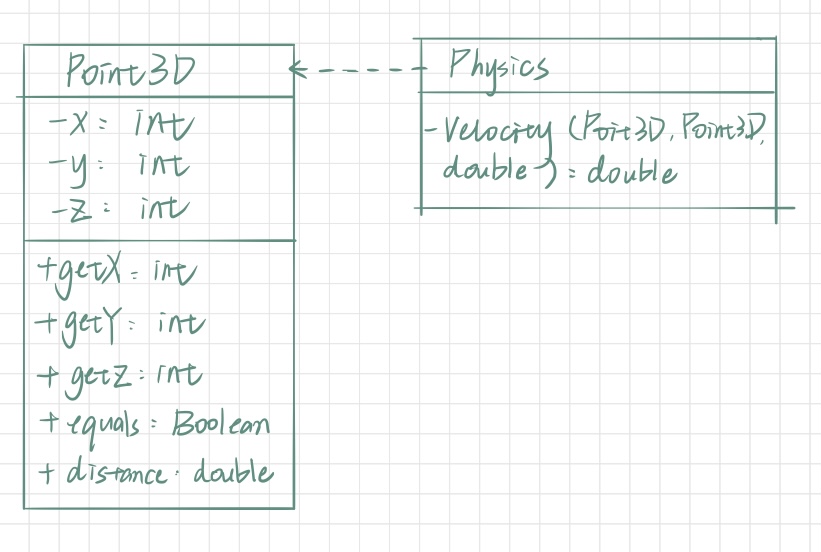 Point3D
-x: int
-y: int
-z: int
+getX: int
+getY: int
+getZ: int
+equals: Boolean
+distance: double
Physics
-Velocity (Poit3D, Point3D,
double): double